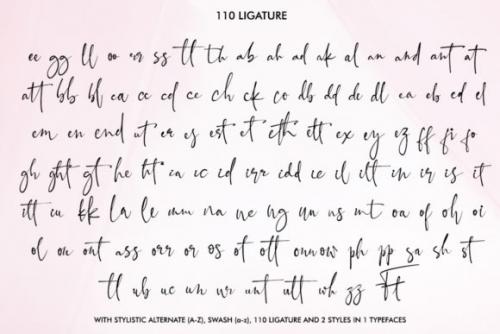 110 LIGATURE
ee gg ll oo rr ss tt th ab ah ad ak al an and ant at
att bb bl ca cc cd ce ch ck co db dd de dl ea eb ed el
em en end ut er es est et eth ett ex ey ez ff fi fo
gh ght gt he ht ia ic id irr idd ie il ilt in ir is it
itt iu kk la le mm na ne ng nn ns nt oa of oh oi
ol on ont ass orr or os ot ott ounow ph pp sa sh st
tl ub uc un ur unt utt wh zz Ft
WITH STYLISTIC ALTERNATE (A-Z), SWASH (a-z), 110 LIGATURE AND 2 STYLES IN 1 TYPEFACES